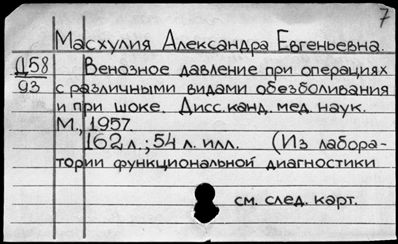 7
Масхулия Александра Евгеньевна.
Д58 Венозное давление при операциях
93 с различными видами обезболивания
и при шоке. Дисс. канд. мед. наук.
М., 1957.
162 л.; 54 л. илл. (Из лабора-
тории функциональной диагностики
см. след. карт.